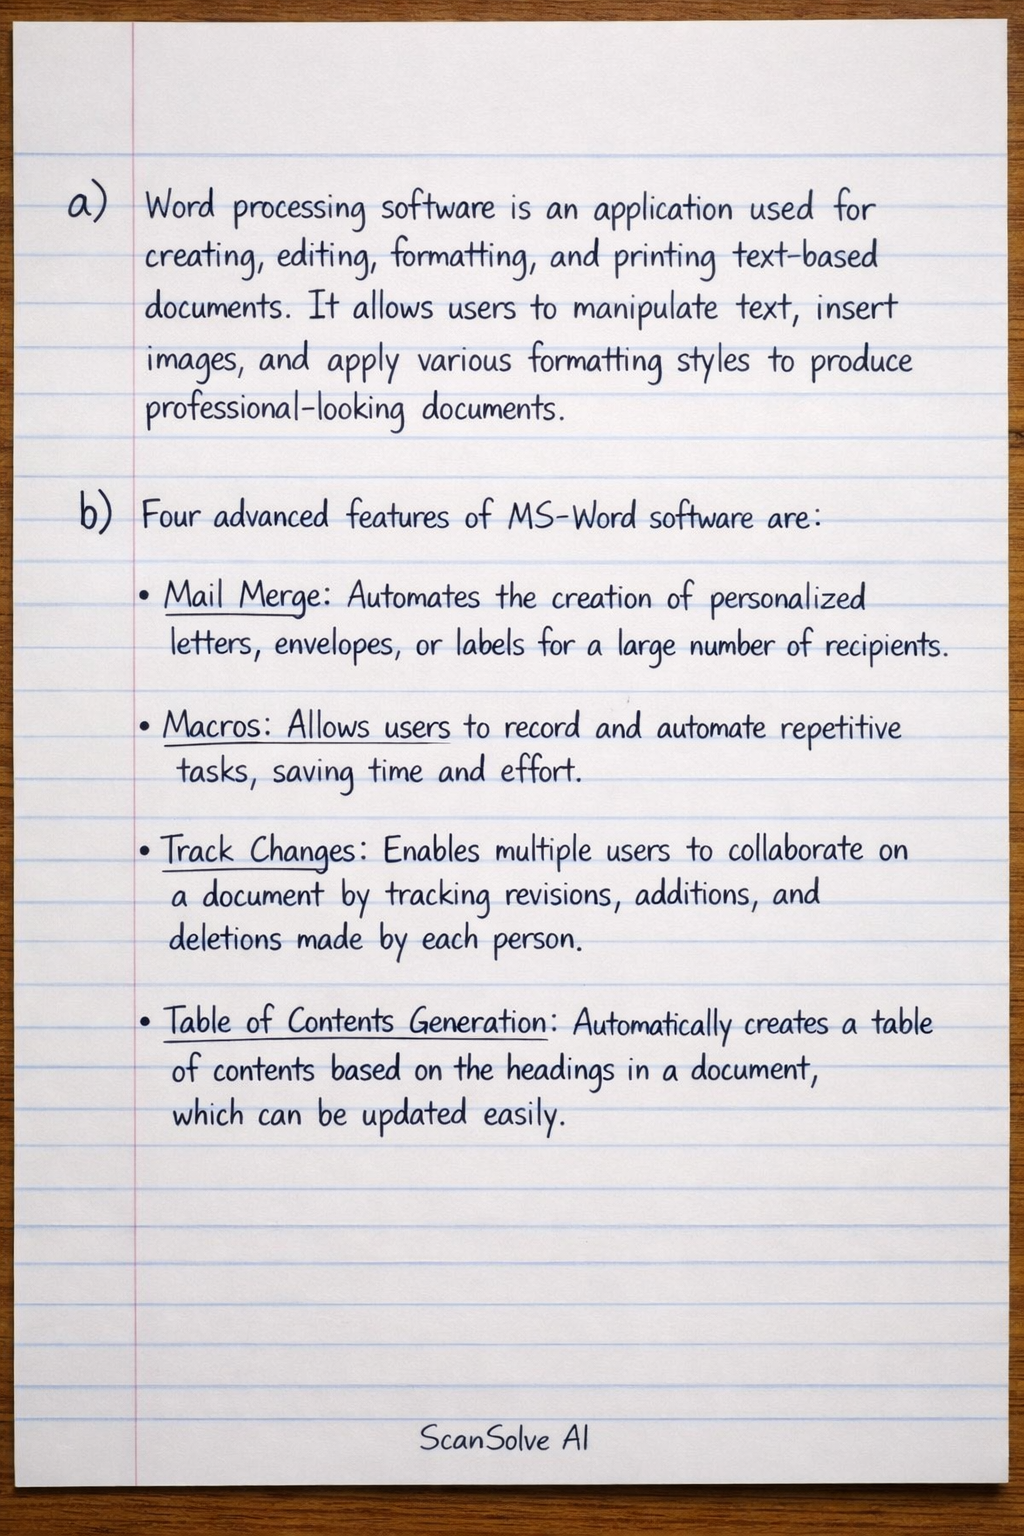 a) Word processing software is an application used for
creating, editing, formatting, and printing text-based
documents. It allows users to manipulate text, insert
images, and apply various formatting styles to produce
professional-looking documents.
b) Four advanced features of MS-Word software are:
• Mail Merge: Automates the creation of personalized
letters, envelopes, or labels for a large number of recipients.
• Macros: Allows users to record and automate repetitive
tasks, saving time and effort.
• Track Changes: Enables multiple users to collaborate on
a document by tracking revisions, additions, and
deletions made by each person.
• Table of Contents Generation: Automatically creates a table
of contents based on the headings in a document,
which can be updated easily.
ScanSolve AI